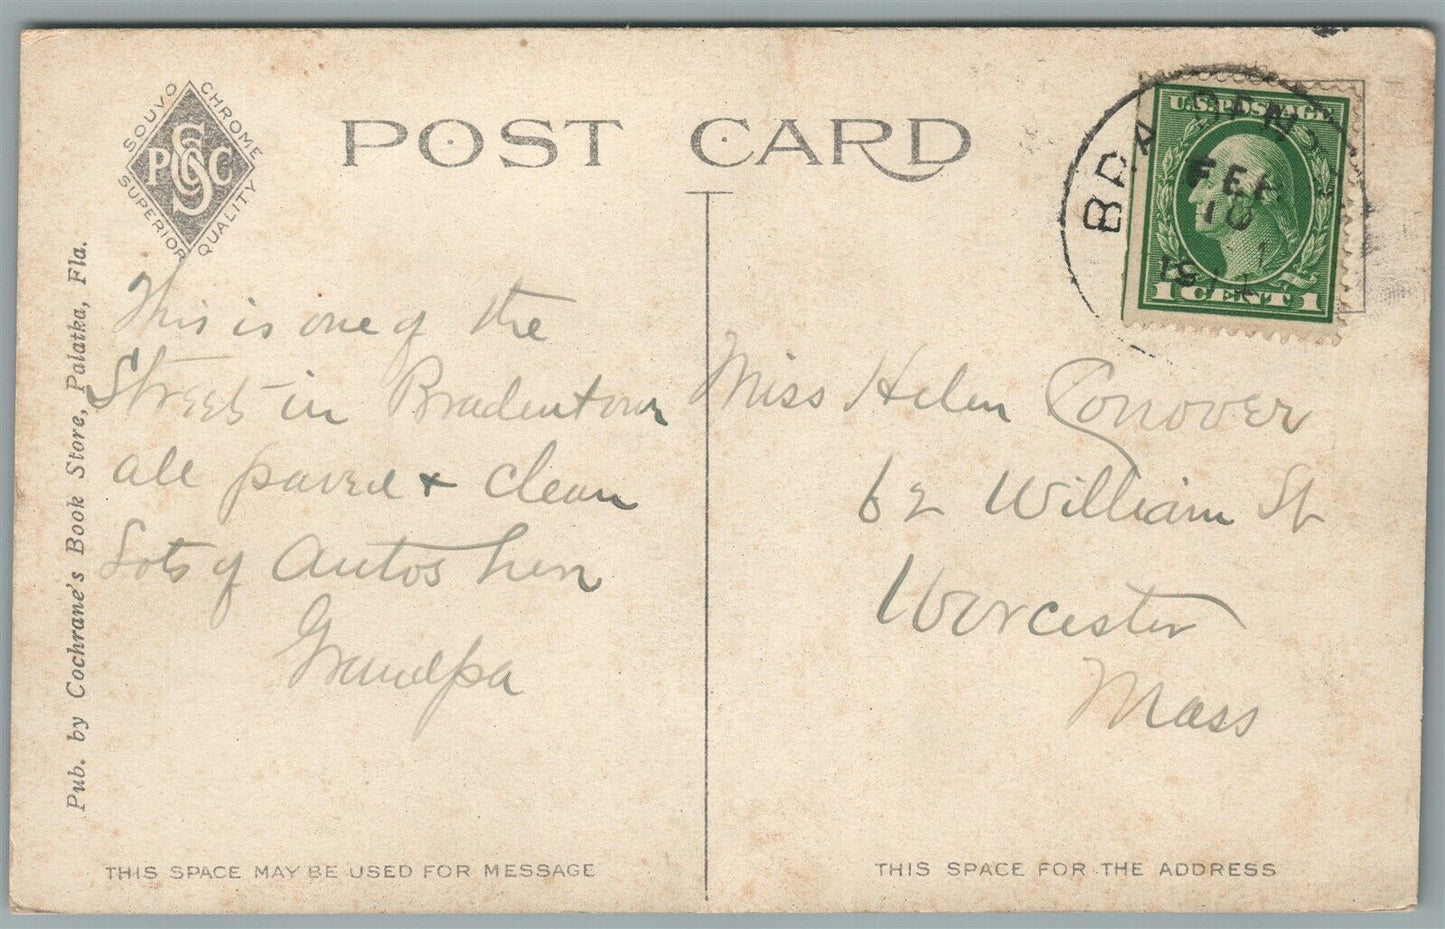 SOUVOCHROME
PSC
SUPERIOR QUALITY
POST CARD
U.S. POSTAGE
1 CENT 1
FEB
10
Pub. by Cochrane's Book Store, Palatka, Fla.
This is one of the
Streets in Bradentown
all paved + clean
Lots of Autos here
Grandpa
Miss Helen Conover
62 William St
Worcester
Mass
THIS SPACE MAY BE USED FOR MESSAGE
THIS SPACE FOR THE ADDRESS